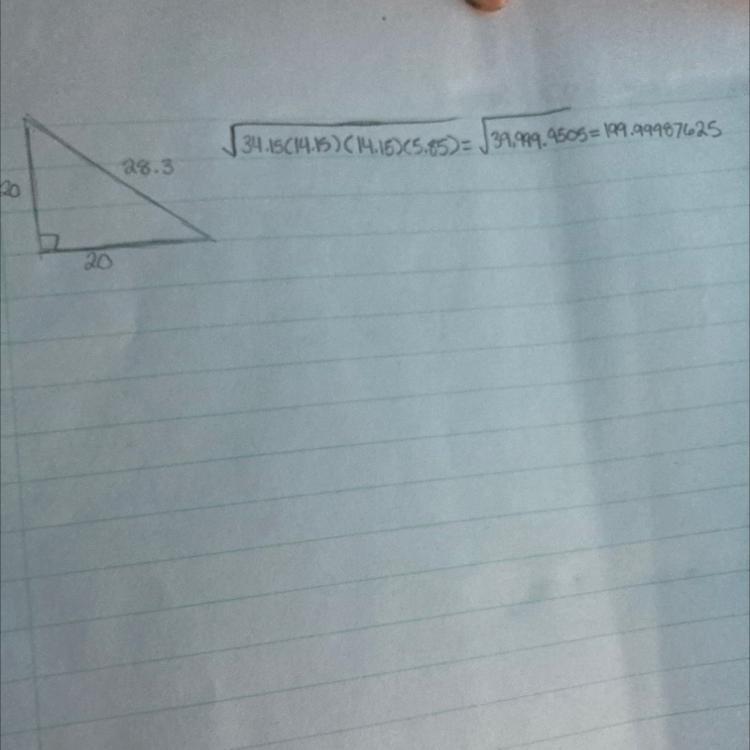 √34.15(14.15)(14.15)(5.85) = √39,999.9505 = 199.99987625
28.3
20
20